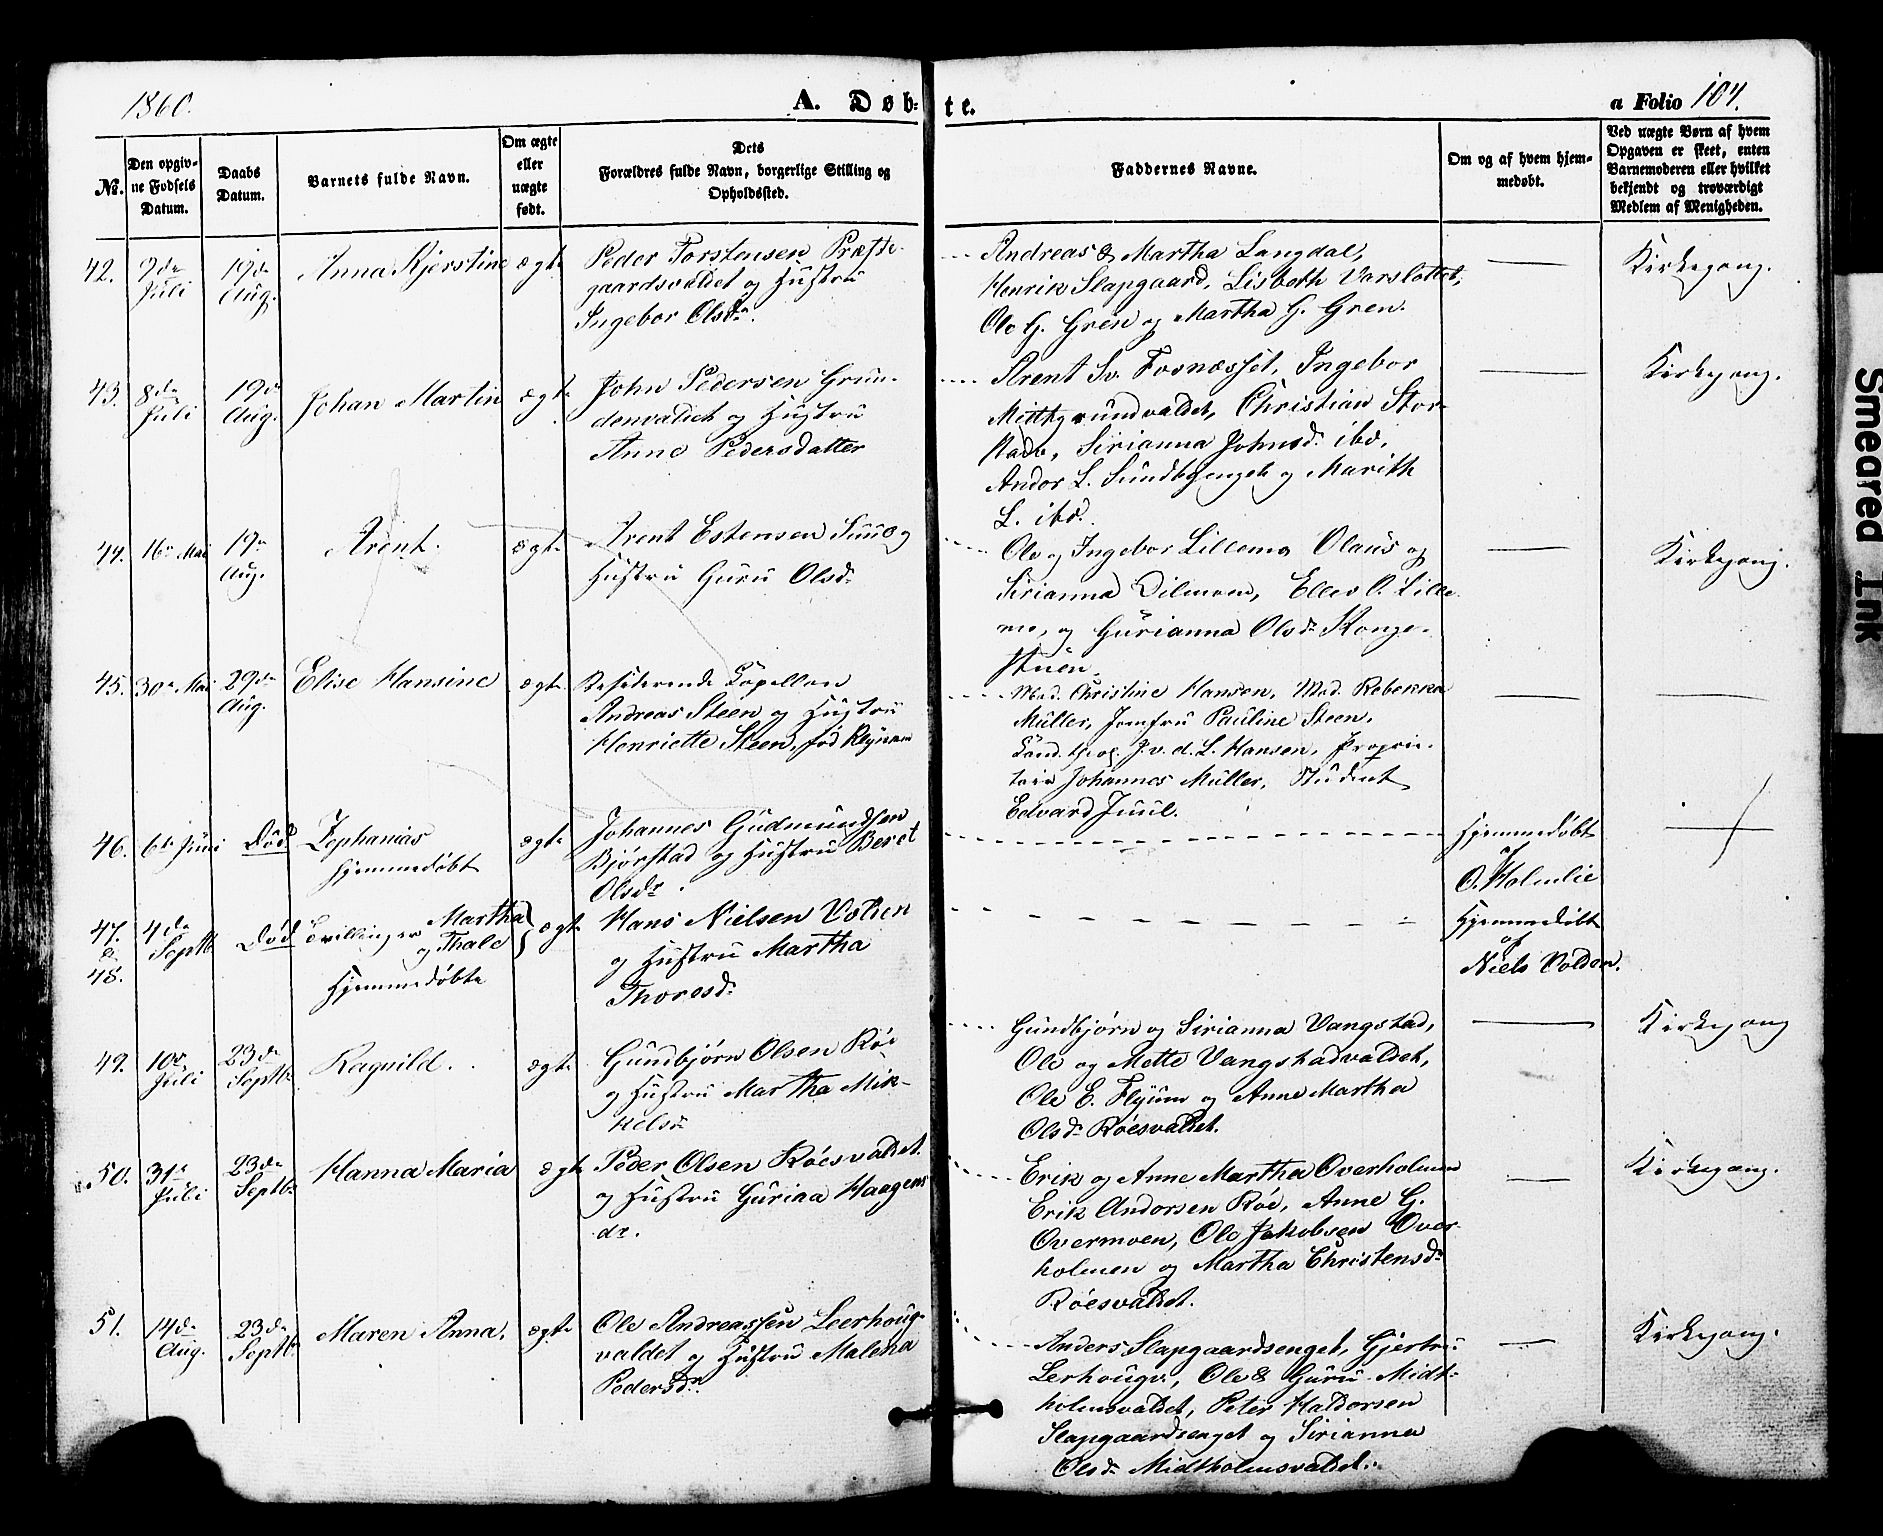 1860.
A. Døb-
te.
a Folio 104.
No.
Den opgiv-
ne Fødsels
Datum.
Daabs
Datum.
Barnets fulde Navn.
Om ægte
eller
uægte
født.
Dets
Forældres fulde Navn, borgerlige Stilling og
Opholdssted.
Faddernes Navne.
Om og af hvem hjem-
medøbt.
Ved uægte Børn af hvem
Opgaven er skeet, enten
Barnemoderen eller hvilket
bekjendt og troværdigt
Medlem af Menigheden.
42. 9de Juli
19de Aug.
Anna Kjerstine
ægte
Peder Torstensen Præste-
gaardsvaldet og Hustru
Ingebor Olsdr.
Andreas & Martha Langdal,
Henrik Slapgaard, Lisbeth Varslottet,
Ole G. Gren og Martha G. Gren.
Kirkegang.
43. 8de Juli
19de Aug.
Johan Martin
ægte
John Pedersen Grun-
denvaldet og Hustru
Anne Pedersdatter
Arent Sv. Fosnæsset, Ingebor
Mittbgrundvaldet, Christian Stor-
Sirianna Johnsd. ibd.
Andor L. og Marith
L. ibd.
Kirkegang.
44. 16de Mai
19de Aug.
Arent.
ægte
Arent Estensen Suul og
Hustru Guru Olsd.
Ole og Ingebor Lillemo Olaus og
Sirianna Dilmoen, Ellev O. Lille-
mo, og Gurianna Olsdr Konge-
stuen.
Kirkegang.
45. 30te Mai
29de Aug.
Elise Hansine
ægte
Residerende Capellan
Andreas Steen og Hustru
Henriette Steen, fød
Mad. Christine Hansen, Mad. Rebekka
Müller, Jomfru Pauline Steen,
Cand. theol. J. v. d. L. Hansen, Proprie-
tair Johannes Müller, Student
Edvard Juul.
46. 6te Juni
Død
Zephanias
hjemmedøbt
ægte
Johannes Gudmundsen
Bjørstad og Hustru Beret
Olsdr.
Hjemmedøbt
af
O. Holmlie
47.
&
48.
4de Septb.
Død
Tvillinger Martha
og Thale
Hjemmedøbte
ægte
Hans Nielsen Volden
og Hustru Martha
Thoresd.
Hjemmedøbt
af
Niels Volden.
49. 10de Juli
23de Septbr
Ragnild.
ægte
Gundbjørn Olsen Röe
og Hustru Martha Mik-
kelsd.
Gundbjørn og Sirianna Vangstad,
Ole og Mette Vangstadvaldet,
Ole E. Flyum og Anne Martha
Olsdr Röesvaldet.
Kirkegang
50. 31te Juli
23de Septbr
Hanna Maria
ægte
Peder Olsen Röesvaldet.
og Hustru Gurina Haagens
dr.
Erik og Anne Martha Overholmen
Erik Andorsen Röe, Anne G.
Overmoen, Ole Jakobsen Over-
holmen og Martha Christensdr
Röesvaldet.
Kirkegang.
51. 14de Aug.
23de Septbr
Maren Anna.
ægte
Ole Andreassen Leerhoug-
valdet og Hustru Malena
Pedersdr.
Anders Slapgaardsenget, Gjertru
Lerhougv., Ole & Guru Midt-
holmsvaldet, Peter Haldorsen
Slapgaardsenget og Sirianna
Olsdr Midtholmsvaldet.
Kirkegang.
Smeared Ink